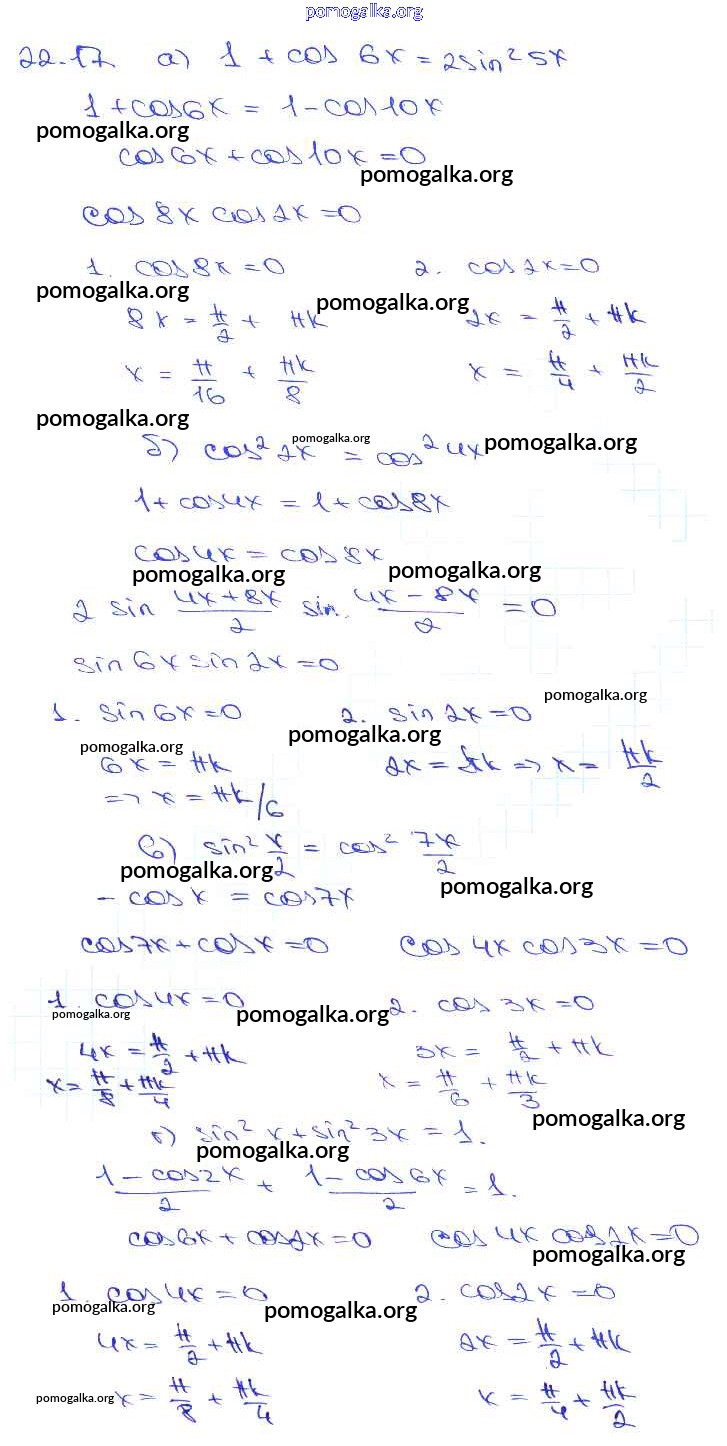 pomogalka.org
22.17 а) 1 + cos 6x = 2sin² 5x
1 + cos6x = 1 - cos10x
pomogalka.org
cos 6x + cos10x = 0
pomogalka.org
cos 8x cos 2x = 0
1. cos8x = 0 2. cos2x = 0
pomogalka.org pomogalka.org
8x = π/2 + πk 2x = π/2 + πk
x = π/16 + πk/8 x = π/4 + πk/2
pomogalka.org
б) cos² 2x = cos² 4x
pomogalka.org pomogalka.org
1 + cos4x = 1 + cos8x
cos4x = cos 8x
pomogalka.org pomogalka.org
2 sin (4x+8x)/2 sin (4x-8x)/2 = 0
sin 6x sin 2x = 0
pomogalka.org
1. sin 6x = 0 2. sin 2x = 0
pomogalka.org pomogalka.org
6x = πk 2x = πk => x = πk/2
=> x = πk/6
в) sin² x/2 = cos² 7x/2
pomogalka.org pomogalka.org
- cos x = cos7x
cos7x + cos x = 0 cos 4x cos 3x = 0
1. cos4x = 0 2. cos 3x = 0
pomogalka.org pomogalka.org
4x = π/2 + πk 3x = π/2 + πk
x = π/8 + πk/4 x = π/6 + πk/3
pomogalka.org
г) sin² x + sin² 3x = 1.
pomogalka.org
(1 - cos2x)/2 + (1 - cos6x)/2 = 1.
cos6x + cos2x = 0 cos 4x cos 2x = 0
pomogalka.org
1. cos4x = 0 2. cos2x = 0
pomogalka.org pomogalka.org
4x = π/2 + πk 2x = π/2 + πk
pomogalka.org x = π/8 + πk/4 x = π/4 + πk/2